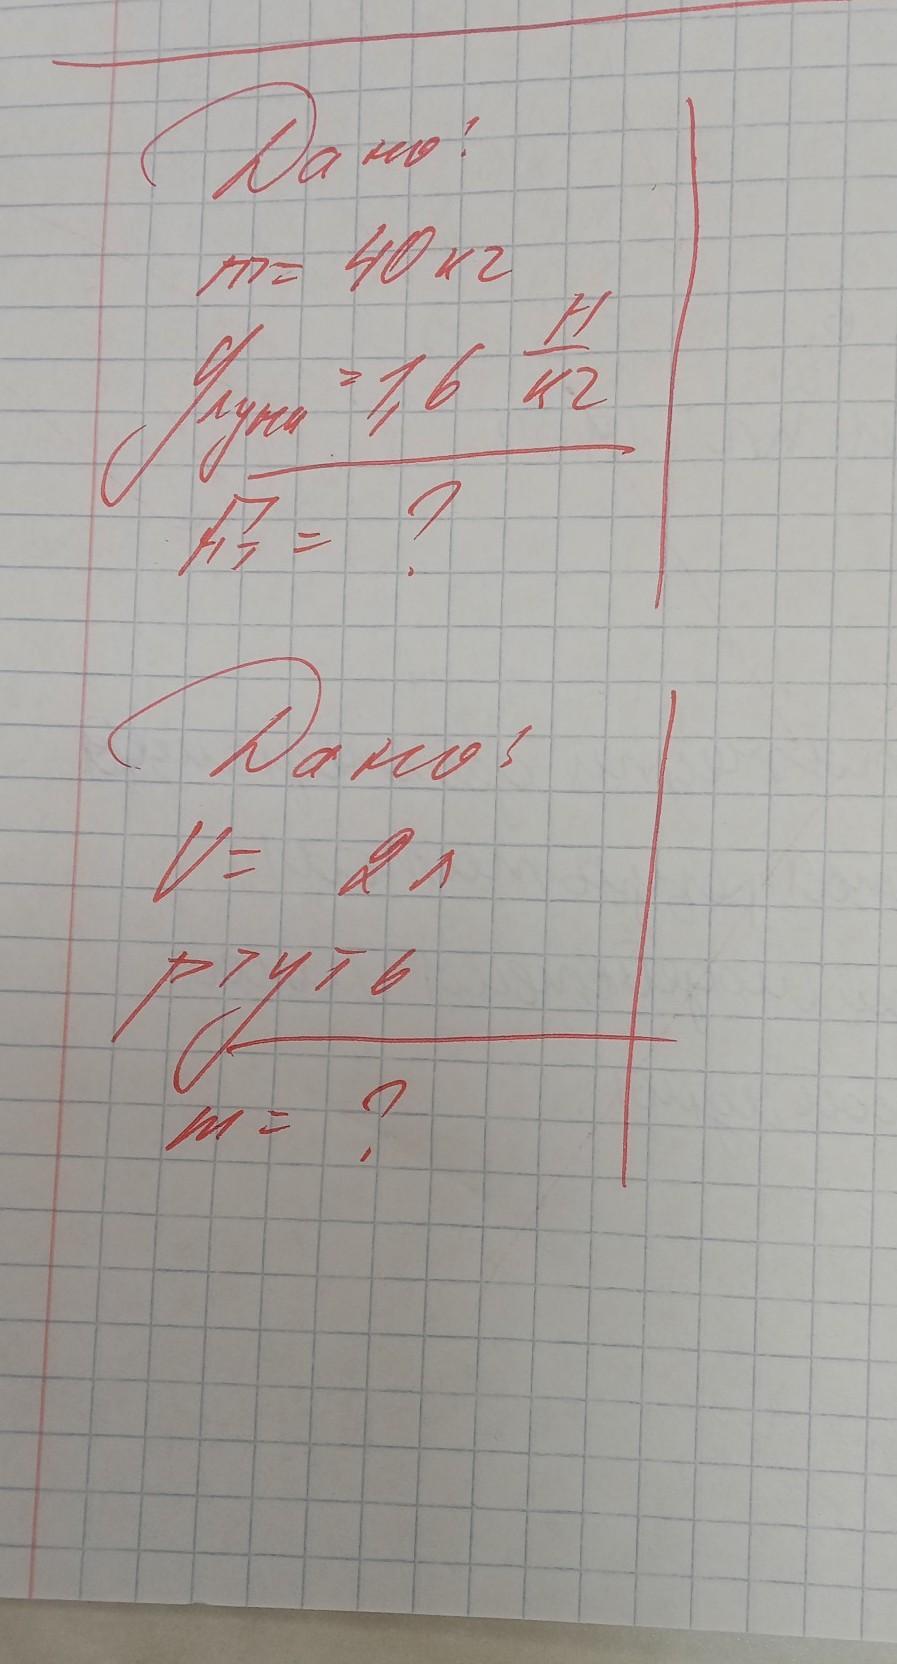 Дано:
m = 40 кг
gлуны = 1,6 Н/кг
Fт = ?
Дано:
V = 2 л
ртуть
m = ?